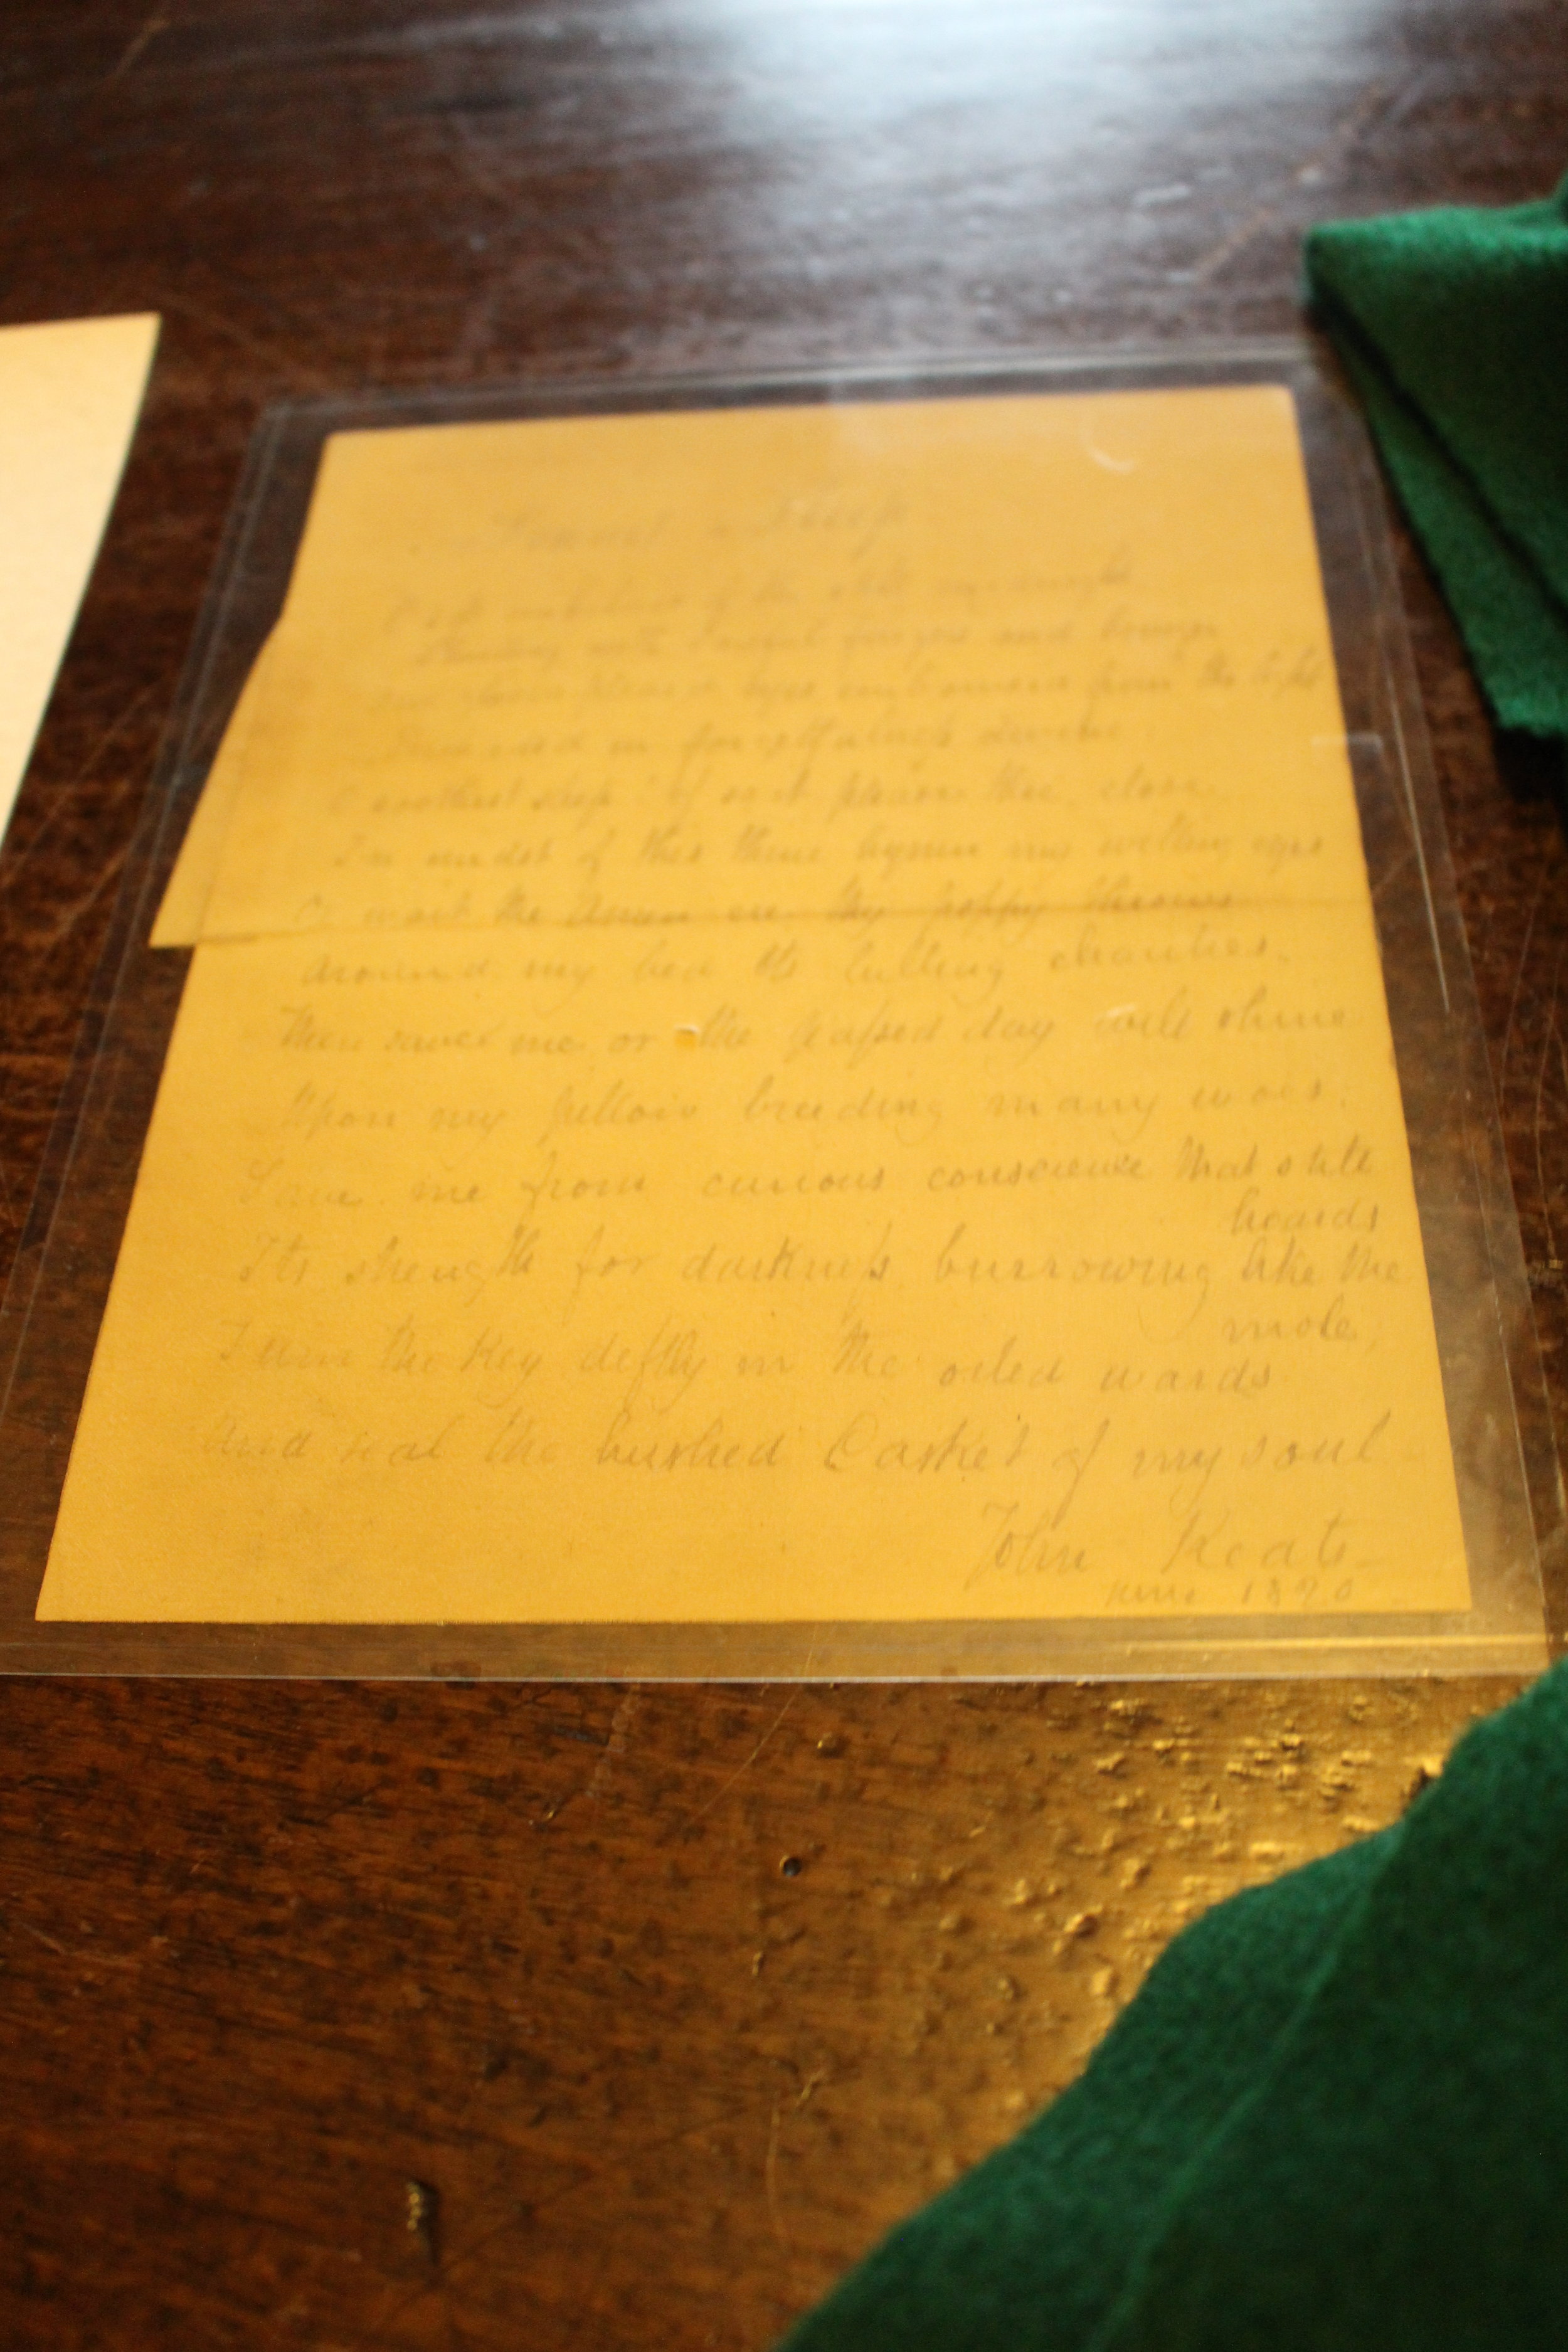 Sonnet Sleep
O soft embalmer of the still midnight
Shutting with careful fingers and benign
our gloom pleased eyes embowered from the light
Enshaded in forgetfulness divine.
O soothest sleep if so it please thee, close
In midst of this thine hymn my willing eyes
Or wait the Amen ere thy poppy throws
around my bed its lulling charities.
Then save me or the passed day will shine
Upon my pillow breeding many woes:
Save me from curious conscience that still
hoards
Its strength for darkness, burrowing like the
mole;
Turn the key deftly in the oiled wards
And seal the hushed Casket of my soul
John Keats
June 1820